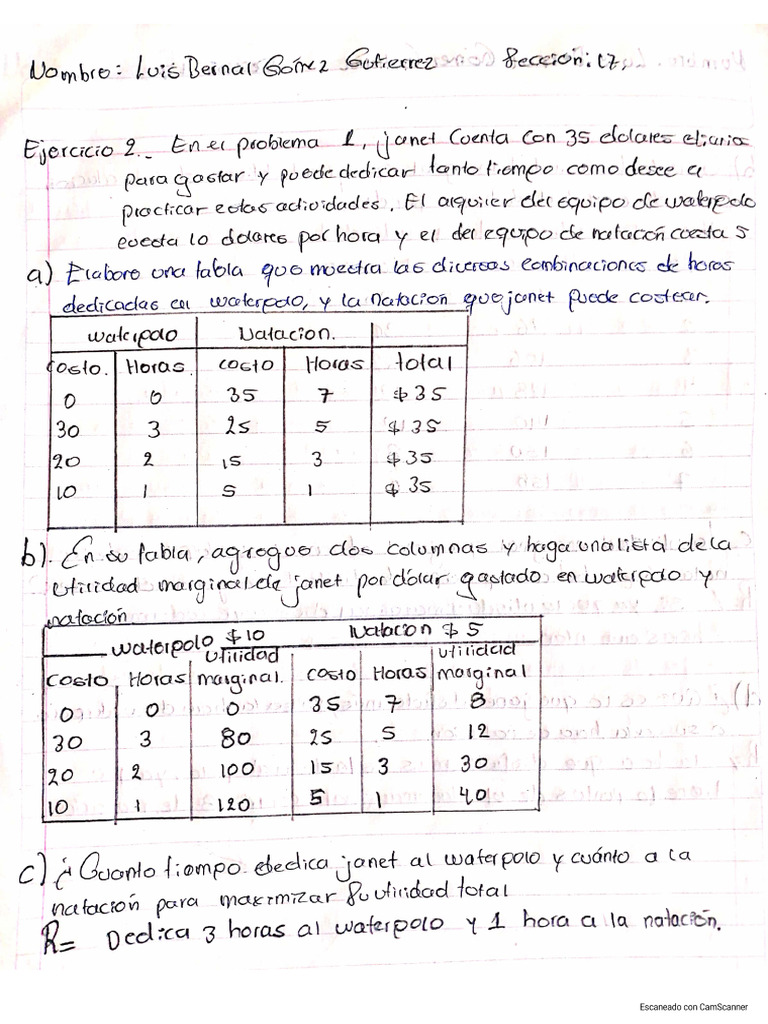 Nombre: Luis Bernal Gómez Gutierrez Sección: 17,
Ejercicio 2.- En el problema 1, janet Cuenta con 35 dolares diarios
para gastar y puede dedicar tanto tiempo como desee a
practicar estas actividades. El alquiler del equipo de waterpolo
cuesta 10 dolares por hora y el del equipo de natación cuesta 5
a) Elabore una tabla que muestra las diversas combinaciones de horas
dedicadas en waterpolo, y la natacion que janet puede costear.
waterpolo Natacion.
costo. Horas. costo Horas total
0 0 35 7 $35
30 3 25 5 $35
20 2 15 3 $35
10 1 5 1 $35
b). En su tabla, agregue dos columnas y haga una lista de la
utilidad marginal de janet por dólar gastado en waterpolo y
natación
waterpolo $10 Natacion $5
costo Horas utilidad marginal. costo Horas utilidad marginal
0 0 0 35 7 8
30 3 80 25 5 12
20 2 100 15 3 30
10 1 120 5 1 40
c) ¿Cuanto tiempo dedica janet al waterpolo y cuánto a la
natación para maximizar su utilidad total
R= Dedica 3 horas al waterpolo y 1 hora a la natación.
Escaneado con CamScanner